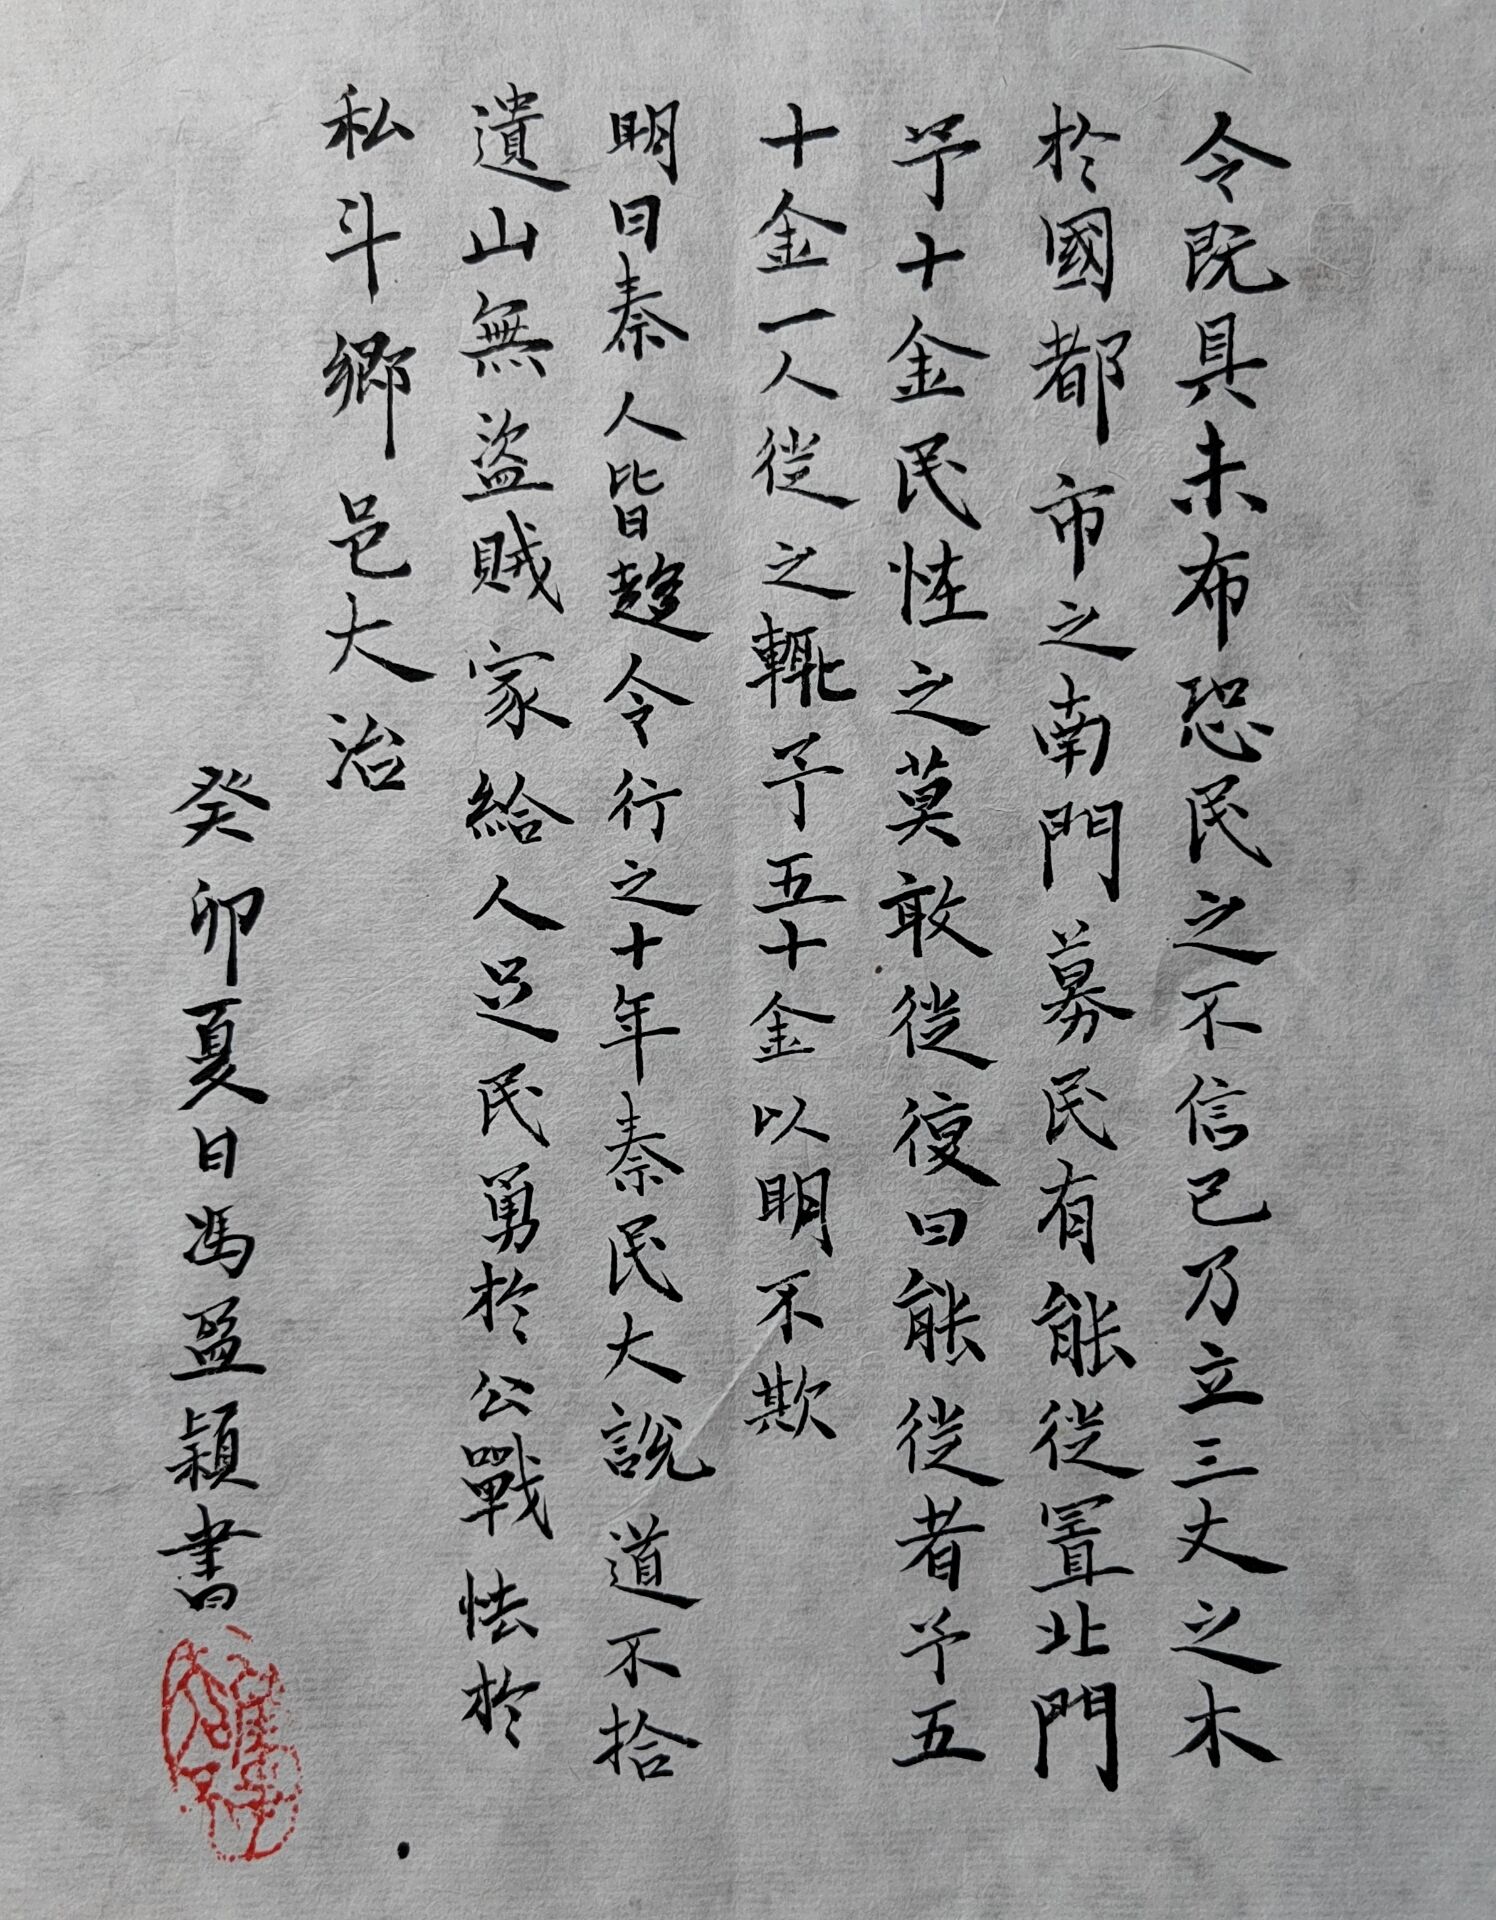 令既具未布恐民之不信已乃立三丈之木
於國都市之南門募民有能徙置北門
予十金民恠之莫敢徙復曰能徙者予五
十金一人徙之輒予五十金以明不欺
明日秦人皆趨令行之十年秦民大說道不拾
遺山無盜賊家給人足民勇於公戰怯於
私斗鄉邑大治
癸卯夏日馮盈潁書